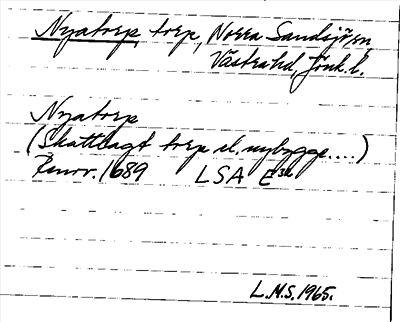 Nyatorp, torp, Norra Sandsjö sn,
Västra hd, Jönk. l.
Nyatorp
(Skattlagt torp el. nybygge....)
Renov. 1689 LSA E 34
L.M.S. 1965.